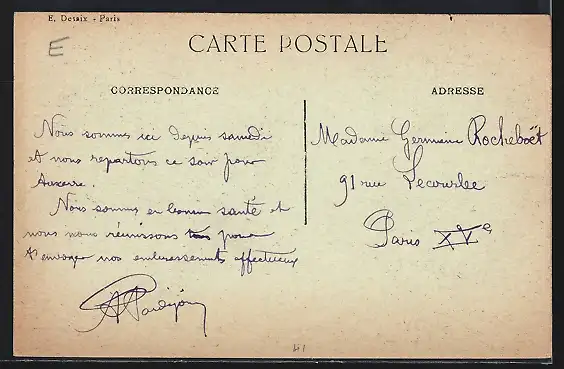 E. Desaix - Paris
E
CARTE POSTALE
CORRESPONDANCE
ADRESSE
Nous sommes ici depuis samedi
et nous repartons ce soir pour
Auxerre.
Nous sommes en bonne santé et
nous nous réunissons tous pour
t'envoyer nos embrassements affectueux
Madame Germaine Rocheboët
91 rue Lecourbe
Paris XVe